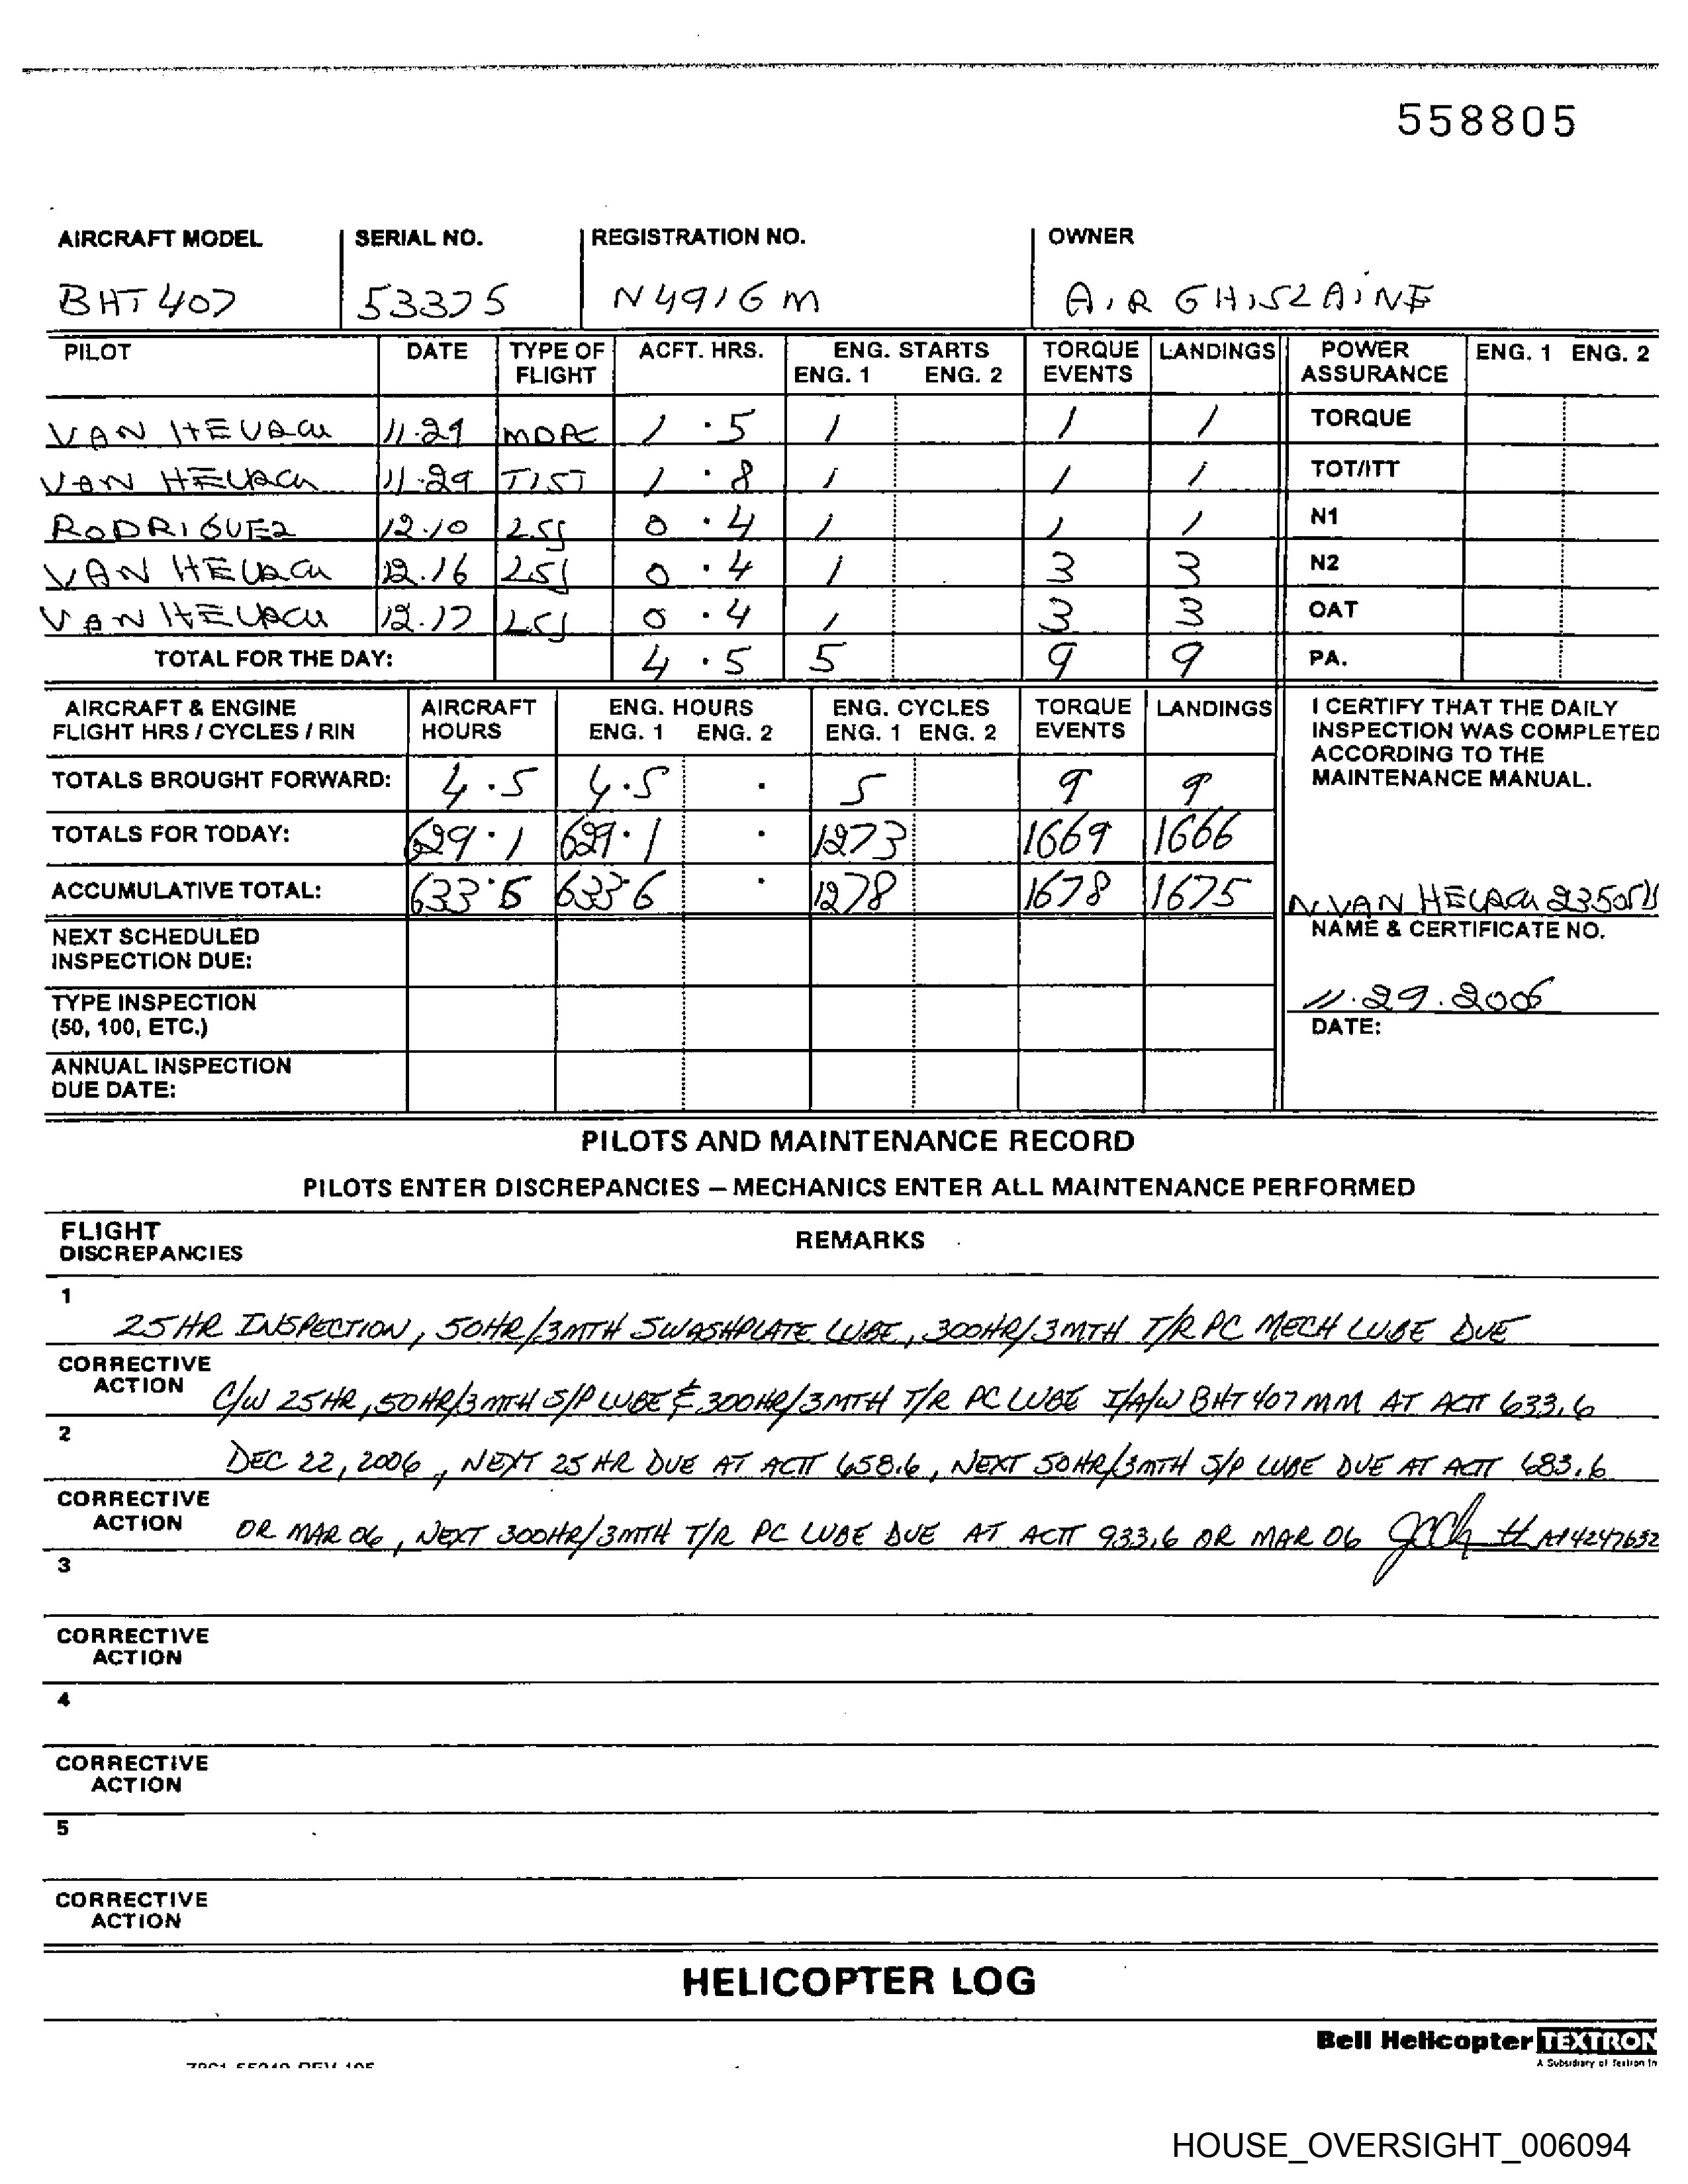 558805
AIRCRAFT MODEL SERIAL NO. REGISTRATION NO. OWNER
BHT 407 53375 N491GM AIR GHISLAINE
PILOT DATE TYPE OF FLIGHT ACFT. HRS. ENG. STARTS ENG. 1 ENG. 2 TORQUE EVENTS LANDINGS POWER ASSURANCE ENG. 1 ENG. 2
VAN 11.29 1.5 1 1 1 TORQUE
VAN 11.29 TIST 1.8 1 1 1 TOT/ITT
RODRIGUEZ 12.10 LSJ 0.4 1 1 1 N1
VAN 12.16 LSJ 0.4 1 3 3 N2
VAN 12.17 LSJ 0.4 1 3 3 OAT
TOTAL FOR THE DAY: 4.5 5 9 9 PA.
AIRCRAFT & ENGINE FLIGHT HRS / CYCLES / RIN AIRCRAFT HOURS ENG. HOURS ENG. 1 ENG. 2 ENG. CYCLES ENG. 1 ENG. 2 TORQUE EVENTS LANDINGS
I CERTIFY THAT THE DAILY
INSPECTION WAS COMPLETED
ACCORDING TO THE
MAINTENANCE MANUAL.
TOTALS BROUGHT FORWARD: 4.5 4.5 . 5 9 9
TOTALS FOR TODAY: 629.1 629.1 . 1273 1669 1666
ACCUMULATIVE TOTAL: 633.6 633.6 . 1278 1678 1675
N. VAN
NAME & CERTIFICATE NO.
NEXT SCHEDULED
INSPECTION DUE:
TYPE INSPECTION
(50, 100, ETC.)
11.29.2006
DATE:
ANNUAL INSPECTION
DUE DATE:
PILOTS AND MAINTENANCE RECORD
PILOTS ENTER DISCREPANCIES – MECHANICS ENTER ALL MAINTENANCE PERFORMED
FLIGHT
DISCREPANCIES REMARKS
1
25HR INSPECTION, 50HR/3MTH SWASHPLATE LUBE, 300HR/3MTH T/R PC MECH LUBE DUE
CORRECTIVE
ACTION C/W 25HR, 50HR/3MTH S/P LUBE & 300HR/3MTH T/R PC LUBE I/A/W BHT 407 MM AT ACTT 633.6
2
DEC 22, 2006, NEXT 25 HR DUE AT ACTT 658.6, NEXT 50HR/3MTH S/P LUBE DUE AT ACTT 683.6
CORRECTIVE
ACTION OR MAR 06, NEXT 300HR/3MTH T/R PC LUBE DUE AT ACTT 933.6 OR MAR 06
3
CORRECTIVE
ACTION
4
CORRECTIVE
ACTION
5
CORRECTIVE
ACTION
HELICOPTER LOG
Bell Helicopter TEXTRON
A Subsidiary of Textron In
HOUSE_OVERSIGHT_006094